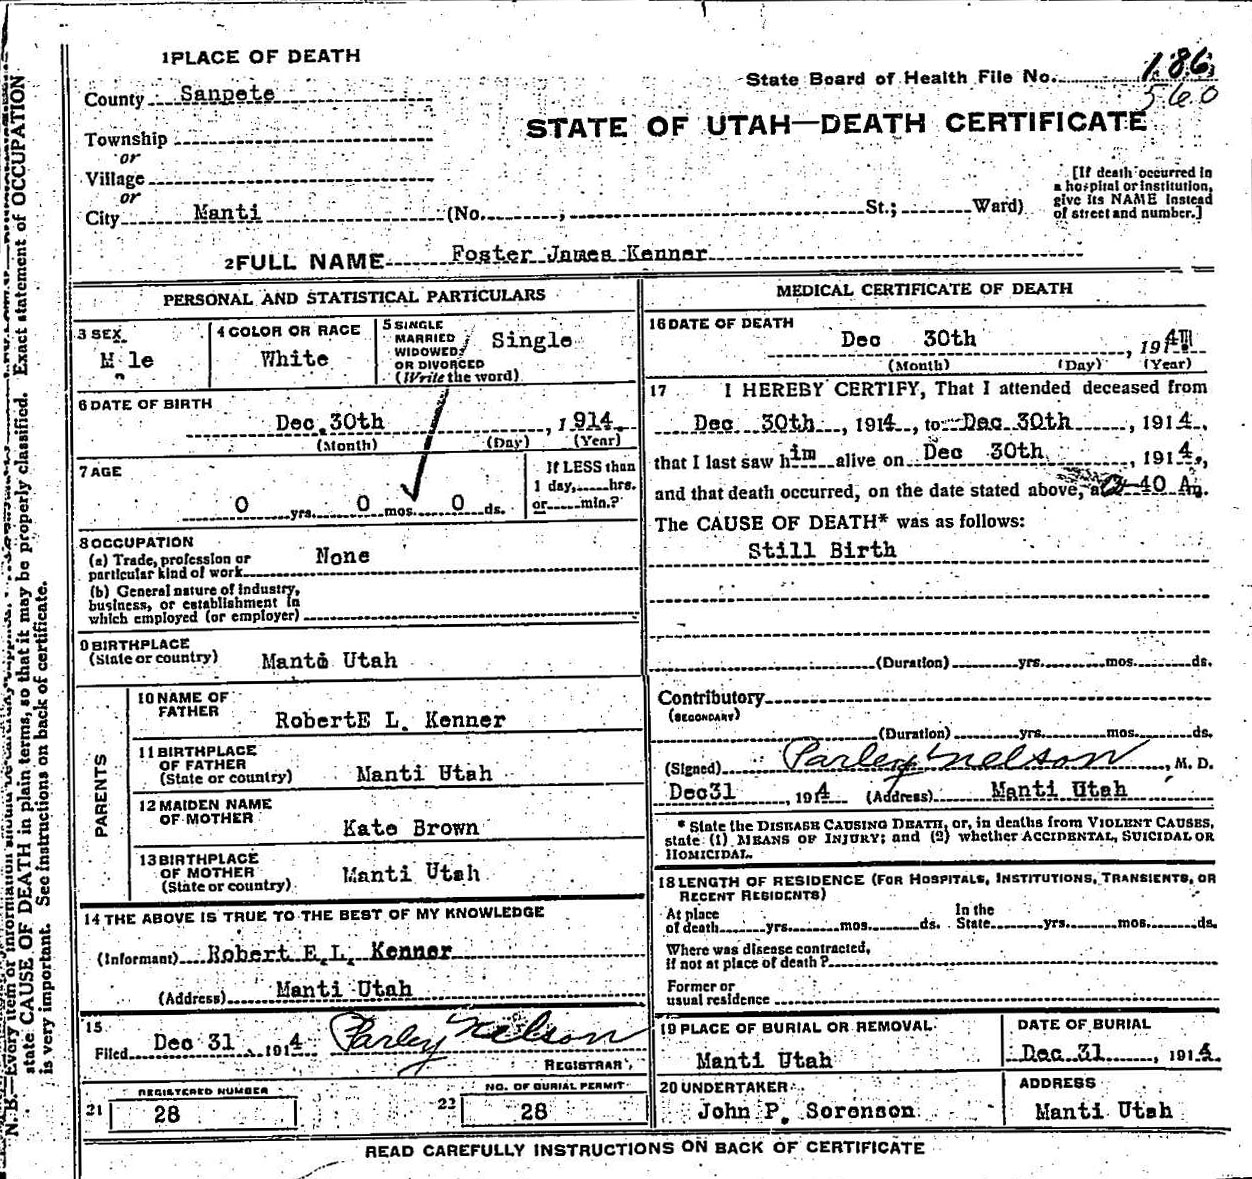 1 PLACE OF DEATH
State Board of Health File No. 186
560
County Sanpete
STATE OF UTAH—DEATH CERTIFICATE
Township
or
Village
or
City Manti (No. , St.; Ward)
[If death occurred in
a hospital or institution,
give its NAME instead
of street and number.]
2 FULL NAME Foster James Kenner
PERSONAL AND STATISTICAL PARTICULARS
3 SEX
M le
4 COLOR OR RACE
White
5 SINGLE
MARRIED
WIDOWED
OR DIVORCED
(Write the word)
Single
6 DATE OF BIRTH
Dec. 30th , 1914
(Month) (Day) (Year)
7 AGE
0 yrs. 0 mos. 0 ds.
If LESS than
1 day, hrs.
or min.?
8 OCCUPATION
(a) Trade, profession or
particular kind of work None
(b) General nature of industry,
business, or establishment in
which employed (or employer)
9 BIRTHPLACE
(State or country) Manti Utah
PARENTS
10 NAME OF
FATHER
RobertE L. Kenner
11 BIRTHPLACE
OF FATHER
(State or country) Manti Utah
12 MAIDEN NAME
OF MOTHER
Kate Brown
13 BIRTHPLACE
OF MOTHER
(State or country) Manti Utah
14 THE ABOVE IS TRUE TO THE BEST OF MY KNOWLEDGE
(Informant) Robert E.L. Kenner
(Address) Manti Utah
15
Filed Dec 31 1914 Parley Nelson
REGISTRAR
21 REGISTERED NUMBER
28
22 NO. OF BURIAL PERMIT
28
MEDICAL CERTIFICATE OF DEATH
16 DATE OF DEATH
Dec 30th , 1914
(Month) (Day) (Year)
17 I HEREBY CERTIFY, That I attended deceased from
Dec 30th , 1914 , to Dec 30th , 1914,
that I last saw him alive on Dec 30th , 1914,
and that death occurred, on the date stated above, a 40 Am.
The CAUSE OF DEATH* was as follows:
Still Birth
(Duration) yrs. mos. ds.
Contributory
(SECONDARY)
(Duration) yrs. mos. ds.
(Signed) Parley Nelson , M. D.
Dec31 , 1914 (Address) Manti Utah
* State the DISEASE CAUSING DEATH, or, in deaths from VIOLENT CAUSES,
state (1) MEANS OF INJURY; and (2) whether ACCIDENTAL, SUICIDAL OR
HOMICIDAL.
18 LENGTH OF RESIDENCE (FOR HOSPITALS, INSTITUTIONS, TRANSIENTS, OR
RECENT RESIDENTS)
At place
of death yrs. mos. ds.
In the
State yrs. mos. ds.
Where was disease contracted,
if not at place of death?
Former or
usual residence
19 PLACE OF BURIAL OR REMOVAL
Manti Utah
DATE OF BURIAL
Dec 31 , 1914
20 UNDERTAKER
John P. Sorenson
ADDRESS
Manti Utah
READ CAREFULLY INSTRUCTIONS ON BACK OF CERTIFICATE
N. B.—Every item of information should be
state CAUSE OF DEATH in plain terms, so that it may be properly classified. Exact statement of OCCUPATION
is very important. See instructions on back of certificate.